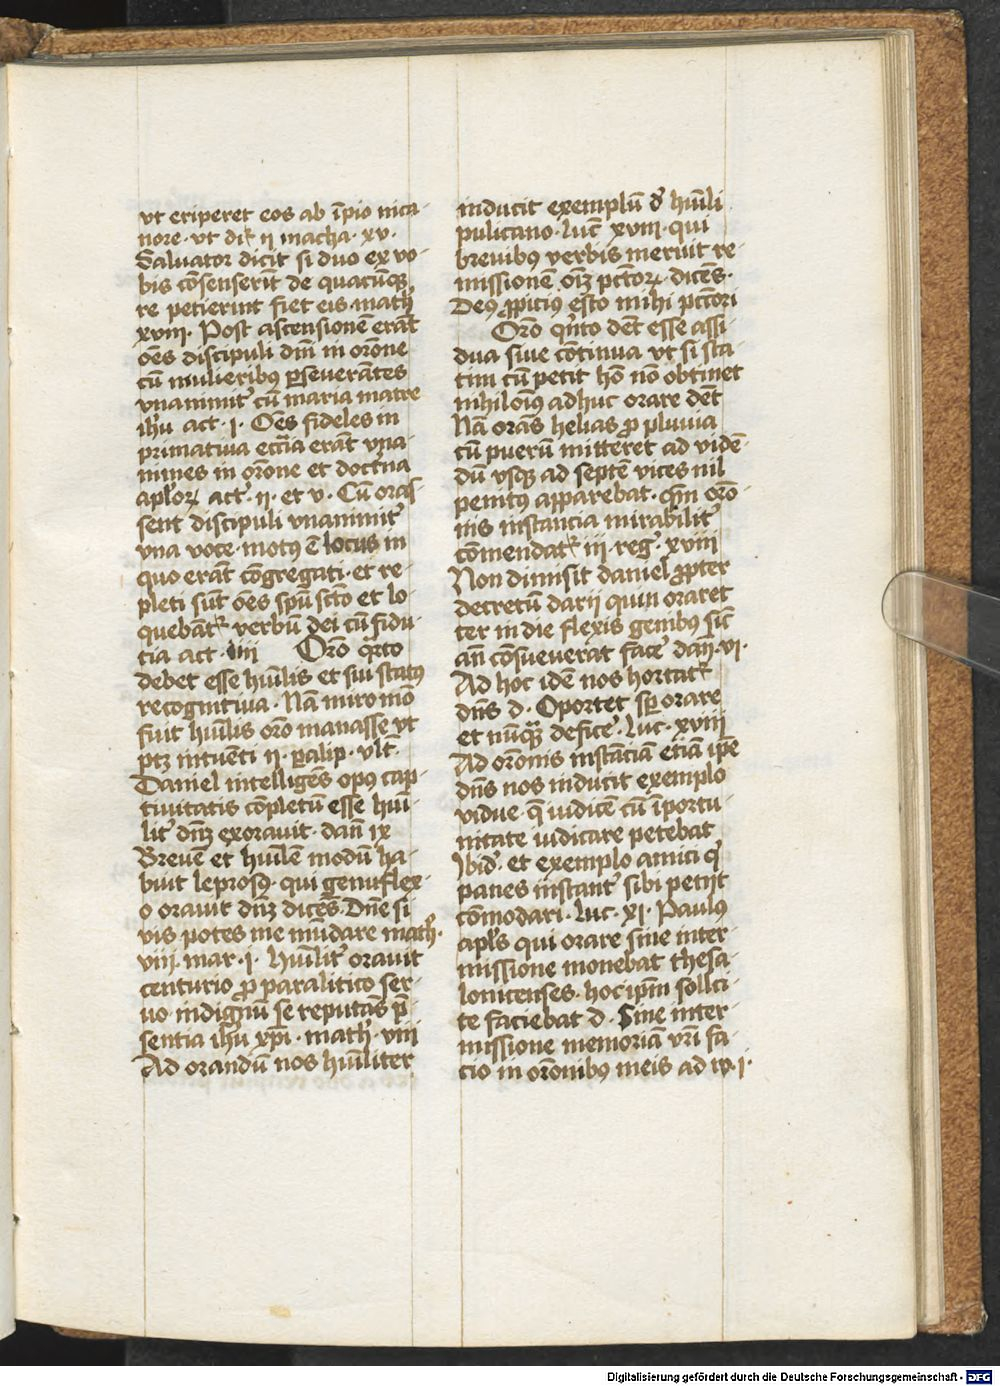 vt eriperet eos ab īpio nica-
nore. vt dr̄ ij macha. xv.
Saluator dicit si duo ex vo-
bis cōsenserīt de quacūqꝫ
re petierint fiet eis. math̄
xviij. Post ascensionē erāt
oēs discipuli dnī in orōne
cū mulieribꝰ ꝑseuerātes
vnanimit᷑ cū maria matre
ihū act. j. Oēs fideles in
primatiua eccīa erāt vna-
nimes in orōne et doctīna
aplorꝝ act. ij. et v. Cū oras-
sent discipuli vnanimit᷑
vna voce. motꝰ ē locus in
quo erāt cōgregati. et re-
pleti sūt oēs spū scto et lo-
quebāt᷑ verbū dei cū fidu-
cia act. iiij Orō qrto
debet esse hūilis et sui statꝰ
recognitiua. Nā miro mō
fuit hūilis orō manasse vt
ptꝫ intuēti ij. ꝑalip. vlt.
Daniel intelligēs opꝰ cap-
tiuitatis cōpletū esse hūi-
lit᷑ dnꝫ exorauit. dan̄ ix
Breuē et hūilē modū ha-
buit leprosꝰ. qui genuflex-
o orauit dnꝫ dicēs. Dne si
vis potes me mūdare math᷑.
viij. mar. j. Hūilit᷑ orauit
centurio ꝓ paralitico ser-
uo indignū se reputās p̄-
sentia ihū xp̄i. math᷑. viij
Ad orandū nos hūiliter
inducit exemplū d᷑ hūili
pulicano. luc̄ xviij. qui
breuibꝰ verbis meruit re-
missionē oīꝫ pctorꝝ. dicēs.
Deꝰ ꝓpiciꝰ esto mihi pctōri
Orō qnto dēt esse assi-
dua siue cōtinua vt si sta-
tim cū petit hō nō obtinet
nihiloīꝰ adhuc orare dēt
Nā orās helias ꝓ pluuia
cū puerū mitteret ad vidē-
dū vsqꝫ ad septē vices nil
penitꝰ apparebat. qm̄ orō-
nis instancia mirabilit᷑
cōmendat᷑ iij. reg. xviij
Non dimisit daniel ꝓpter
decretū darij quin oraret
ter in die flexis genibꝰ sic̄
an̄ cōsueuerat face᷑ dan̄. vj.
Ad hoc idē nos hortat᷑
dn̄s d. Oportet sꝑ orare
et nūqꝫ defice᷑. luc. xviij
Ad orōnis instāciā etiā ipē
dn̄s nos inducit exemplo
vidue. q̄ iudicē cū īportu-
nitate iudicare petebat
Ibid᷑. et exemplo amici q᷑
panes instant᷑ sibi petijt
cōmodari. luc. xj. Paulꝰ
apl̄s qui orare sine inter-
missione monebat thesa-
lonicenses. hoc ipm̄ sollici-
te faciebat d. Sine inter-
missione memoriā vr̄i fa-
cio in orōnibꝰ meis ad ro. j.
Digitalisierung gefördert durch die Deutsche Forschungsgemeinschaft - DFG